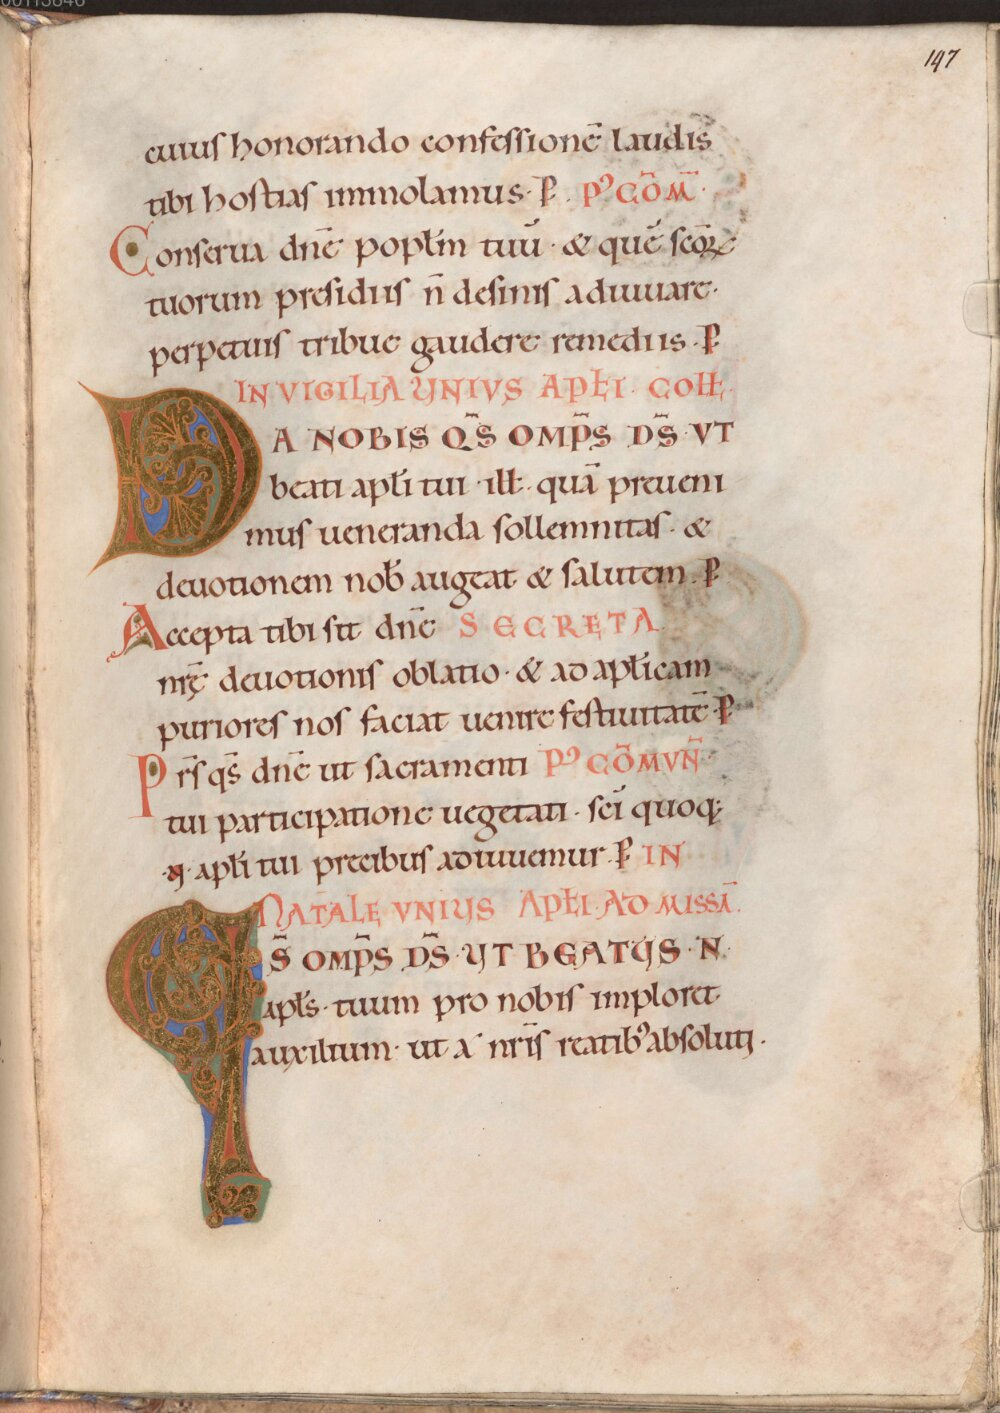 147
cuius honorando confessionē laudis
tibi hostias immolamus· ꝑ. PꝰCŌM̄·
Conserua dn̄e popl̄m tuū· & quē sc̄oꝝ
tuorum presidiis n̄ desinis adiuuare·
perpetuis tribue gaudere remediis· ꝑ
IN VIGILIA VNIVS APŁI· COLŁ·
DA NOBIS Q̄S OMP̄S D̄S· VT
beati apłi tui ·iłł· quā preueni
mus ueneranda sollemnitas· &
deuotionem nob̄ augeat & salutem· ꝑ
Accepta tibi sit dn̄e SECRETA
nr̄ę deuotionis oblatio· & ad apłicam
puriores nos faciat uenire festiuitatē· ꝑ
Pr̄s q̄s dn̄e ut sacramenti PꝰCŌMVN̄·
tui participatione uegetati· sc̄i quoq;
·N· apłi tui precibus adiuuemur· ꝑ IN
NATALE VNIVS APŁI· AD MISSĀ·
Q̄S OMP̄S D̄S· VT BEATVS· N·
apłs· tuum pro nobis imploret
auxilium· ut a nr̄is reatibꝰ absoluti·